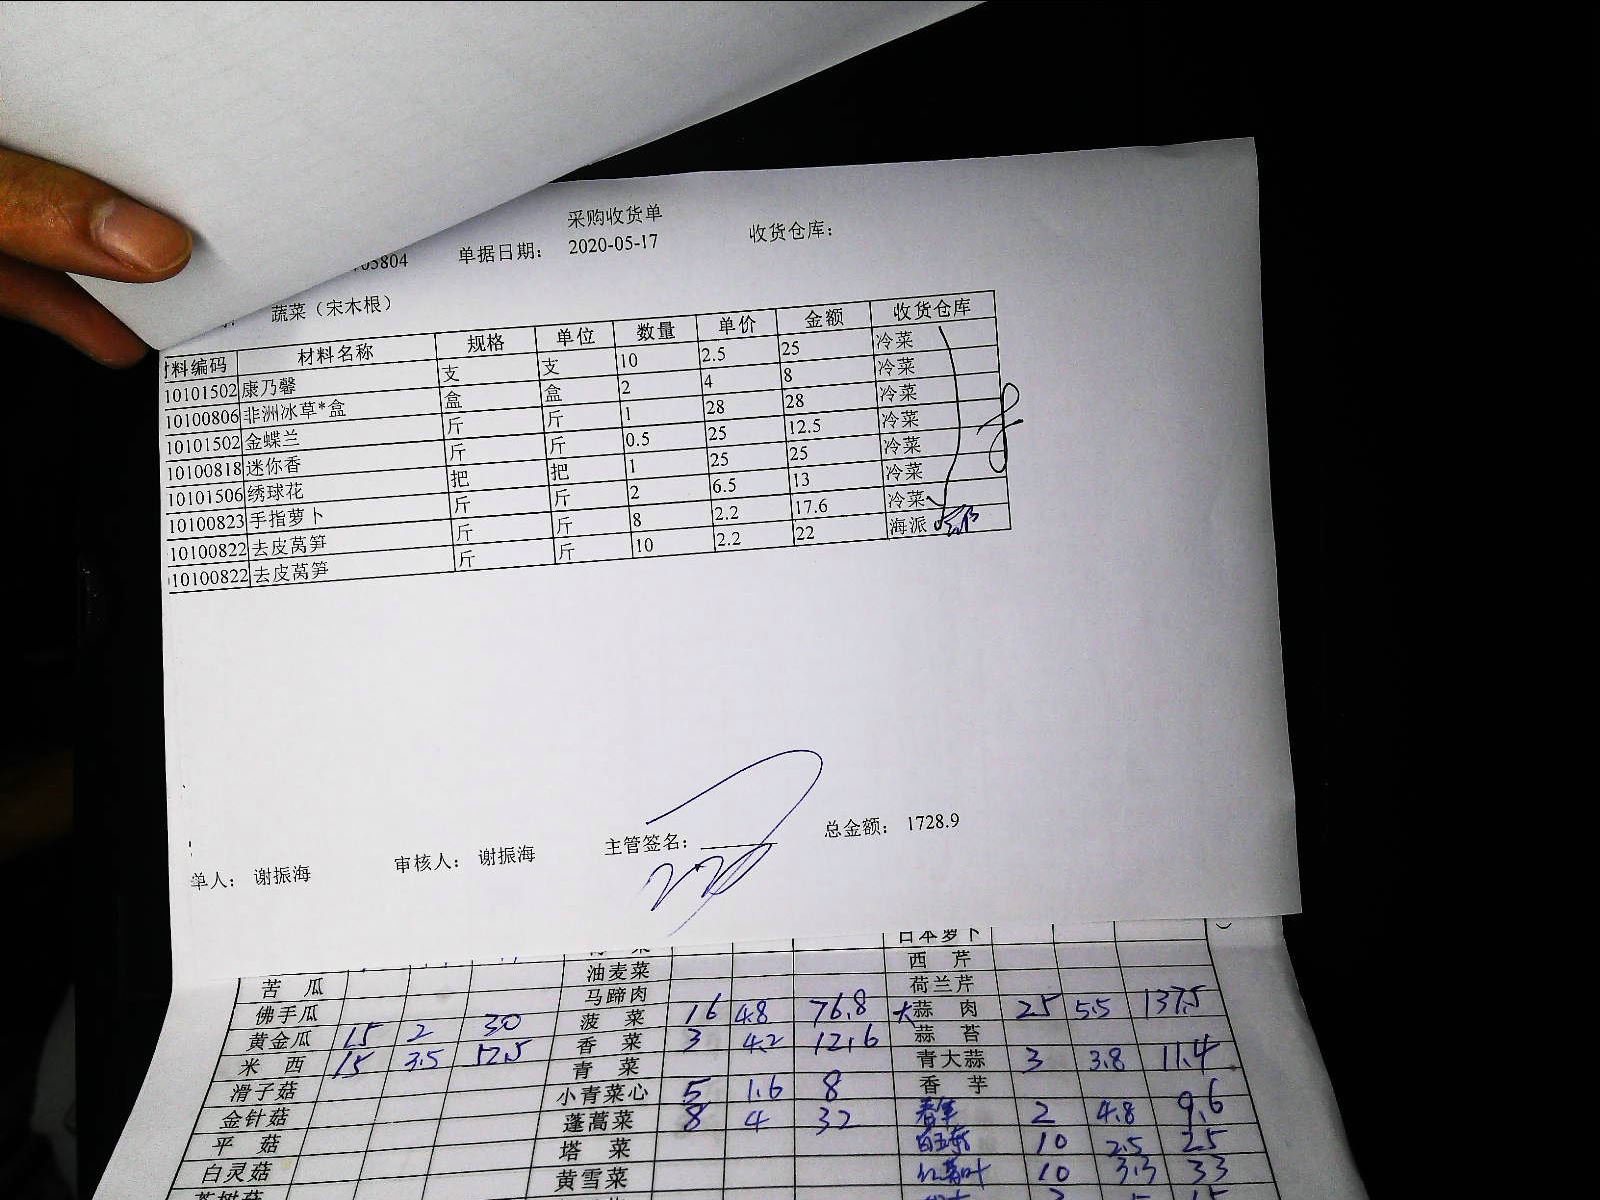 采购收货单
05804 单据日期： 2020-05-17 收货仓库：
蔬菜（宋木根）
料编码 材料名称 规格 单位 数量 单价 金额 收货仓库
10101502 康乃馨 支 支 10 2.5 25 冷菜
10100806 非洲冰草*盒 盒 盒 2 4 8 冷菜
10101502 金蝶兰 斤 斤 1 28 28 冷菜
10100818 迷你香 斤 斤 0.5 25 12.5 冷菜
10101506 绣球花 把 把 1 25 25 冷菜
10100823 手指萝卜 斤 斤 2 6.5 13 冷菜
10100822 去皮莴笋 斤 斤 8 2.2 17.6 冷菜
10100822 去皮莴笋 斤 斤 10 2.2 22 海派
单人： 谢振海 审核人： 谢振海 主管签名： 总金额： 1728.9
日本萝卜
油麦菜 西芹
苦瓜 马蹄肉 荷兰芹
佛手瓜 菠菜 16 4.8 76.8 大蒜肉 25 5.5 137.5
黄金瓜 15 2 30 香菜 3 4.2 12.6 蒜苔
米西 15 3.5 52.5 青菜 青大蒜 3 3.8 11.4
滑子菇 小青菜心 5 1.6 8 香芋
金针菇 蓬蒿菜 8 4 32 2 4.8 9.6
平菇 塔菜 10 2.5 25
白灵菇 黄雪菜 10 3.3 33
茶树菇 15